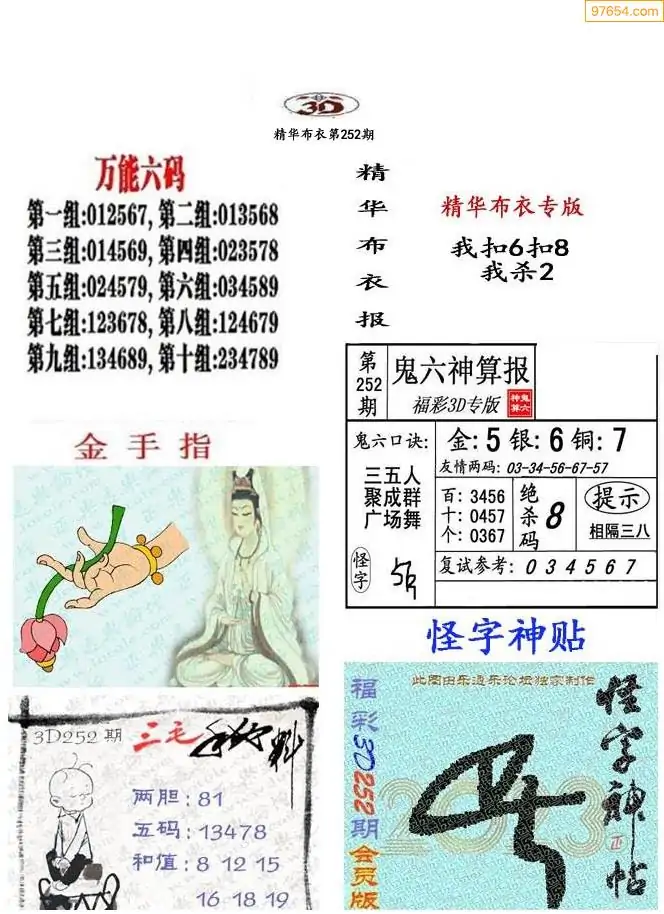 97654.com
3D
精华布衣第252期
万能六码
第一组:012567, 第二组:013568
第三组:014569, 第四组:023578
第五组:024579, 第六组:034589
第七组:123678, 第八组:124679
第九组:134689, 第十组:234789
精华布衣报
精华布衣专版
我扣6扣8
我杀2
第252期
鬼六神算报
福彩3D专版
鬼六神算
鬼六口诀:
三五人
聚成群
广场舞
金:5 银:6 铜:7
友情两码: 03-34-56-67-57
百: 3456
十: 0457
个: 0367
绝杀码
8
提示
相隔三八
怪字
复试参考: 0 3 4 5 6 7
金手指
3D252期
三毛
料
两胆: 81
五码: 13478
和值: 8 12 15
16 18 19
怪字神贴
此图由乐逍乐论坛独家制作
福彩3D252期会员版
怪字神帖
2013